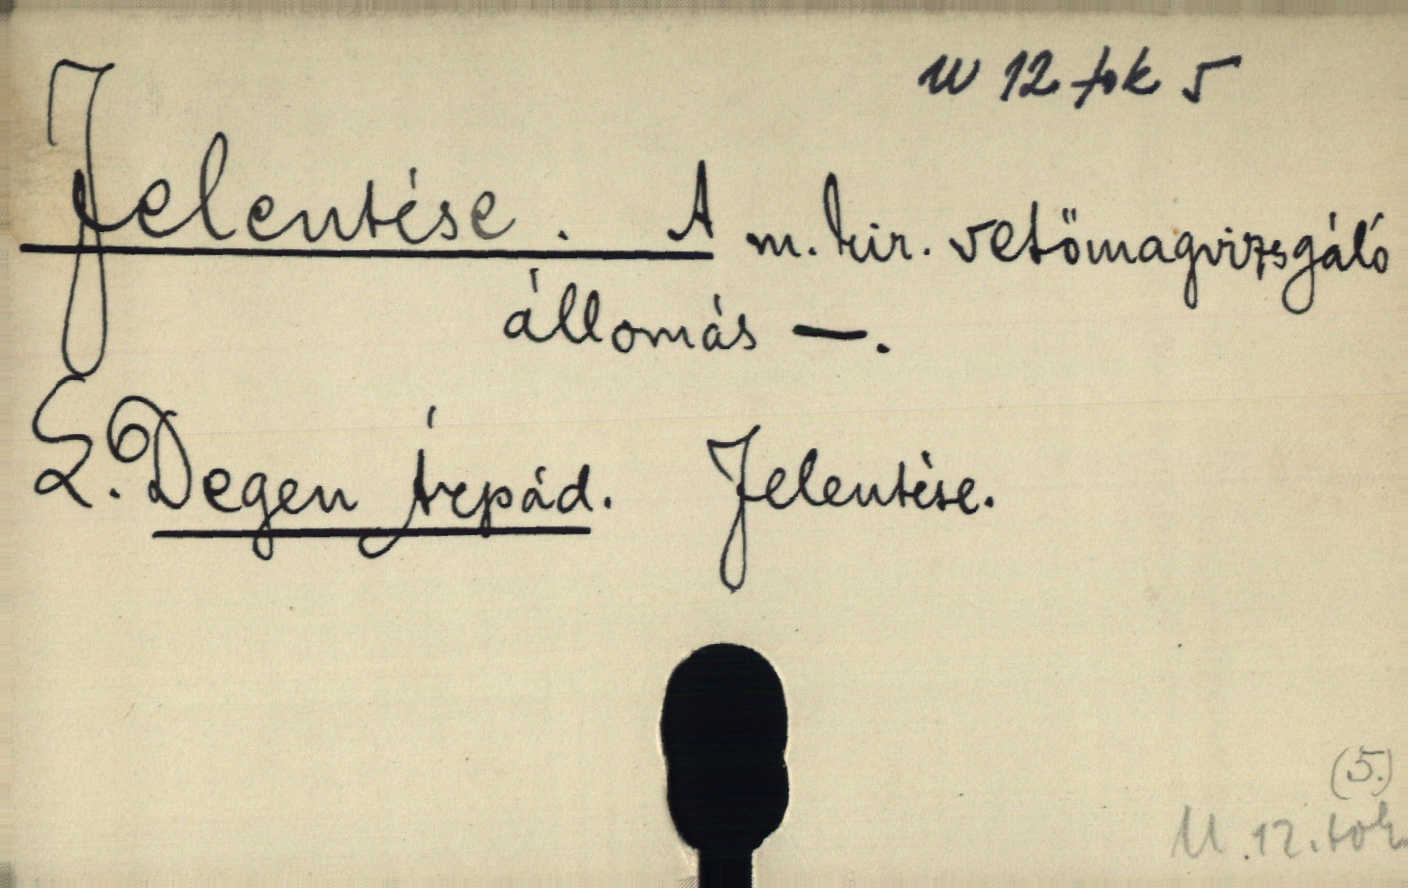 U 12 tok 5
Jelentése. A m. kir. vetőmagvizsgáló
állomás —.
L. Degen Árpád. Jelentése.
(5.)
U. 12. tok